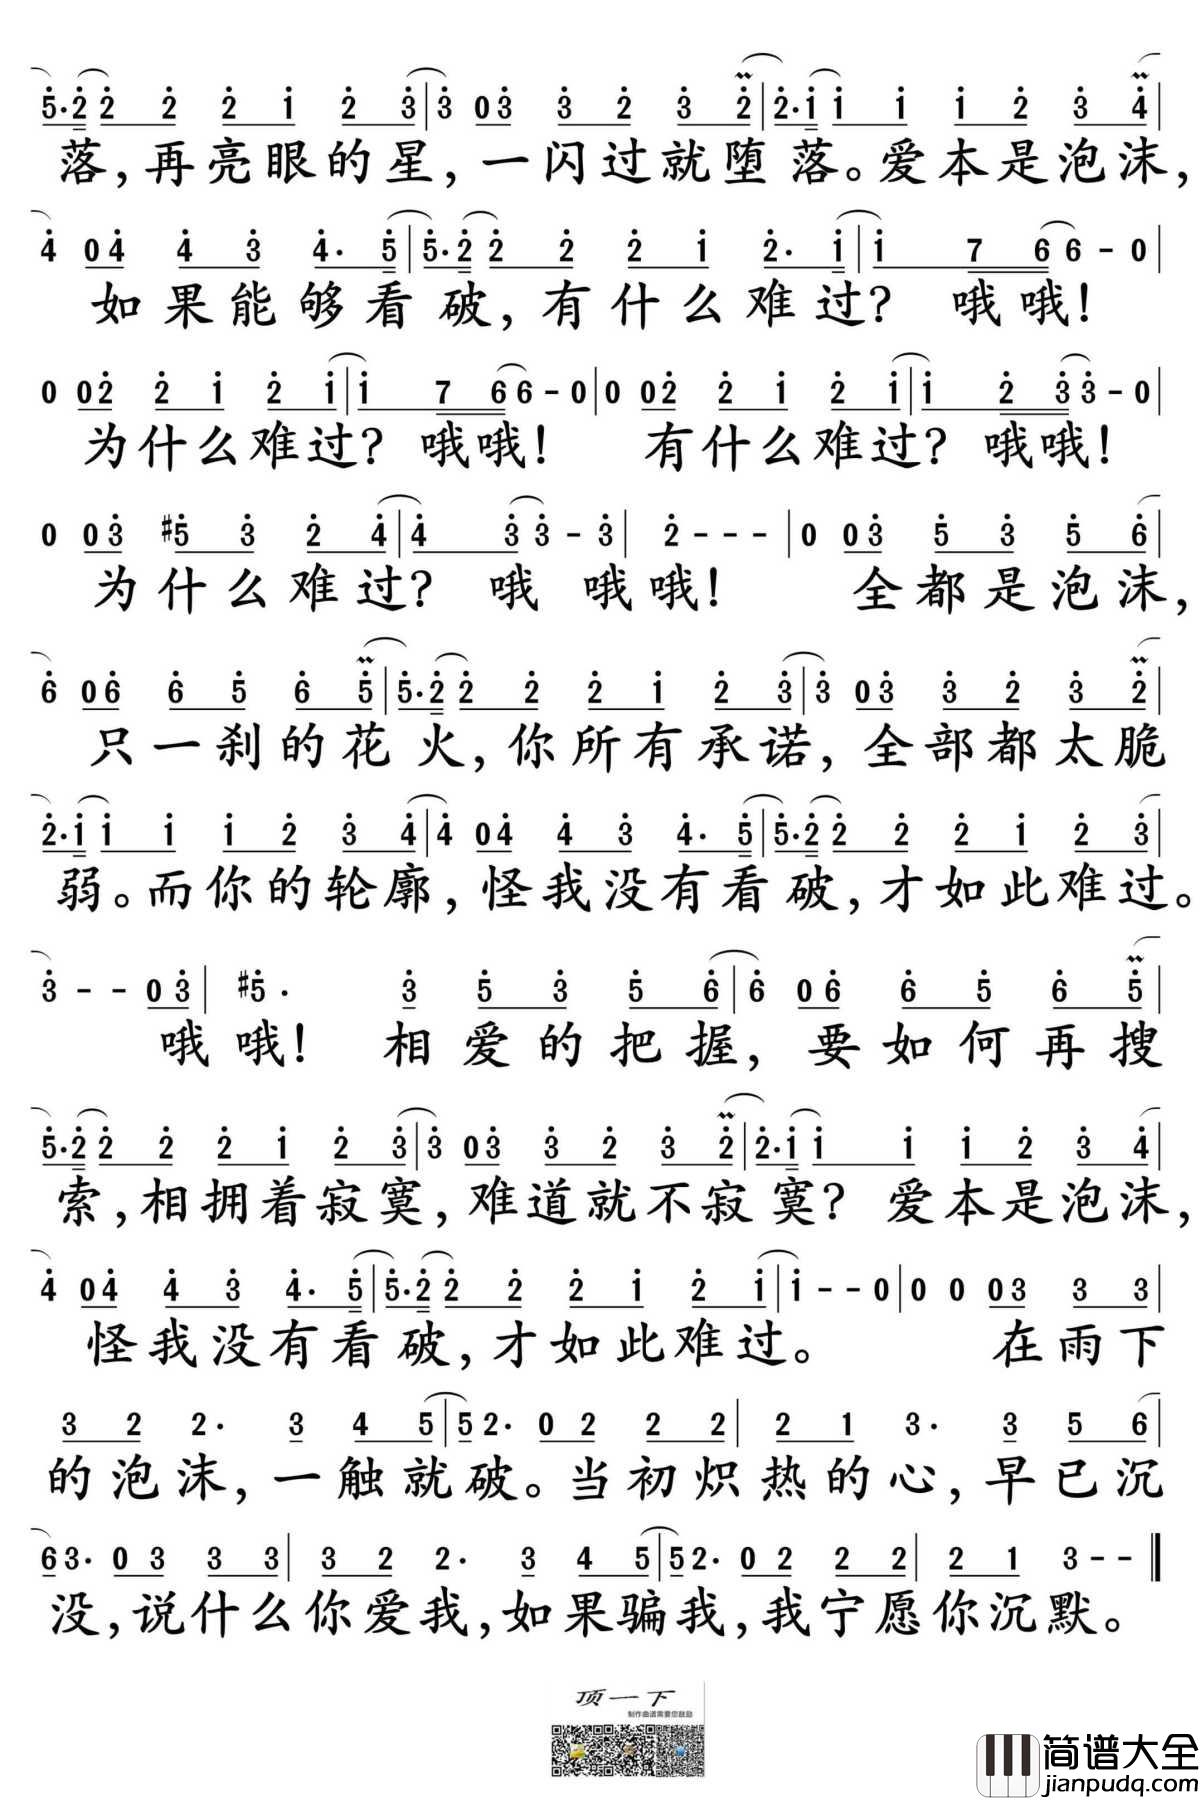 5·2 2 2 2 1 2 3|3 03 3 2 3 2|2·1 1 1 1 2 3 4|
落,再亮眼的星,一闪过就堕落。爱本是泡沫,
4 04 4 3 4· 5|5·2 2 2 2 1 2· 1|1 7 6 6 - 0|
如果能够看破,有什么难过? 哦哦!
0 02 2 1 2 1|1 7 6 6 - 0|0 02 2 1 2 1|1 2 3 3 - 0|
为什么难过? 哦哦! 有什么难过? 哦哦!
0 03 #5 3 2 4|4 3 3 - 3|2 - - -|0 03 5 3 5 6|
为什么难过? 哦 哦哦! 全都是泡沫,
6 06 6 5 6 5|5·2 2 2 2 1 2 3|3 03 3 2 3 2|
只一刹的花火,你所有承诺,全部都太脆
2·1 1 1 1 2 3 4|4 04 4 3 4· 5|5·2 2 2 2 1 2 3|
弱。而你的轮廓,怪我没有看破,才如此难过。
3 - - 03|#5· 3 5 3 5 6|6 06 6 5 6 5|
哦 哦! 相爱的把握,要如何再搜
5·2 2 2 2 1 2 3|3 03 3 2 3 2|2·1 1 1 1 2 3 4|
索,相拥着寂寞,难道就不寂寞? 爱本是泡沫,
4 04 4 3 4· 5|5·2 2 2 2 1 2 1|1 - - 0|0 0 03 3 3|
怪我没有看破,才如此难过。 在雨下
3 2 2· 3 4 5|5 2· 0 2 2 2|2 1 3· 3 5 6|
的泡沫,一触就破。当初炽热的心,早已沉
6 3· 0 3 3 3|3 2 2· 3 4 5|5 2· 0 2 2 2|2 1 3 - -‖
没,说什么你爱我,如果骗我,我宁愿你沉默。
顶一下
制作曲谱需要您鼓励
简谱大全
jianpudq.com